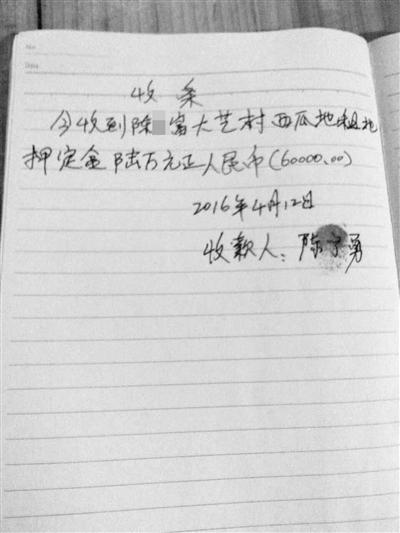 No
Date
收条
今收到陈 富大艺村西瓜地租地
押定金陆万元正人民币(60000.00)
2016年4月12日
收款人：陈 勇